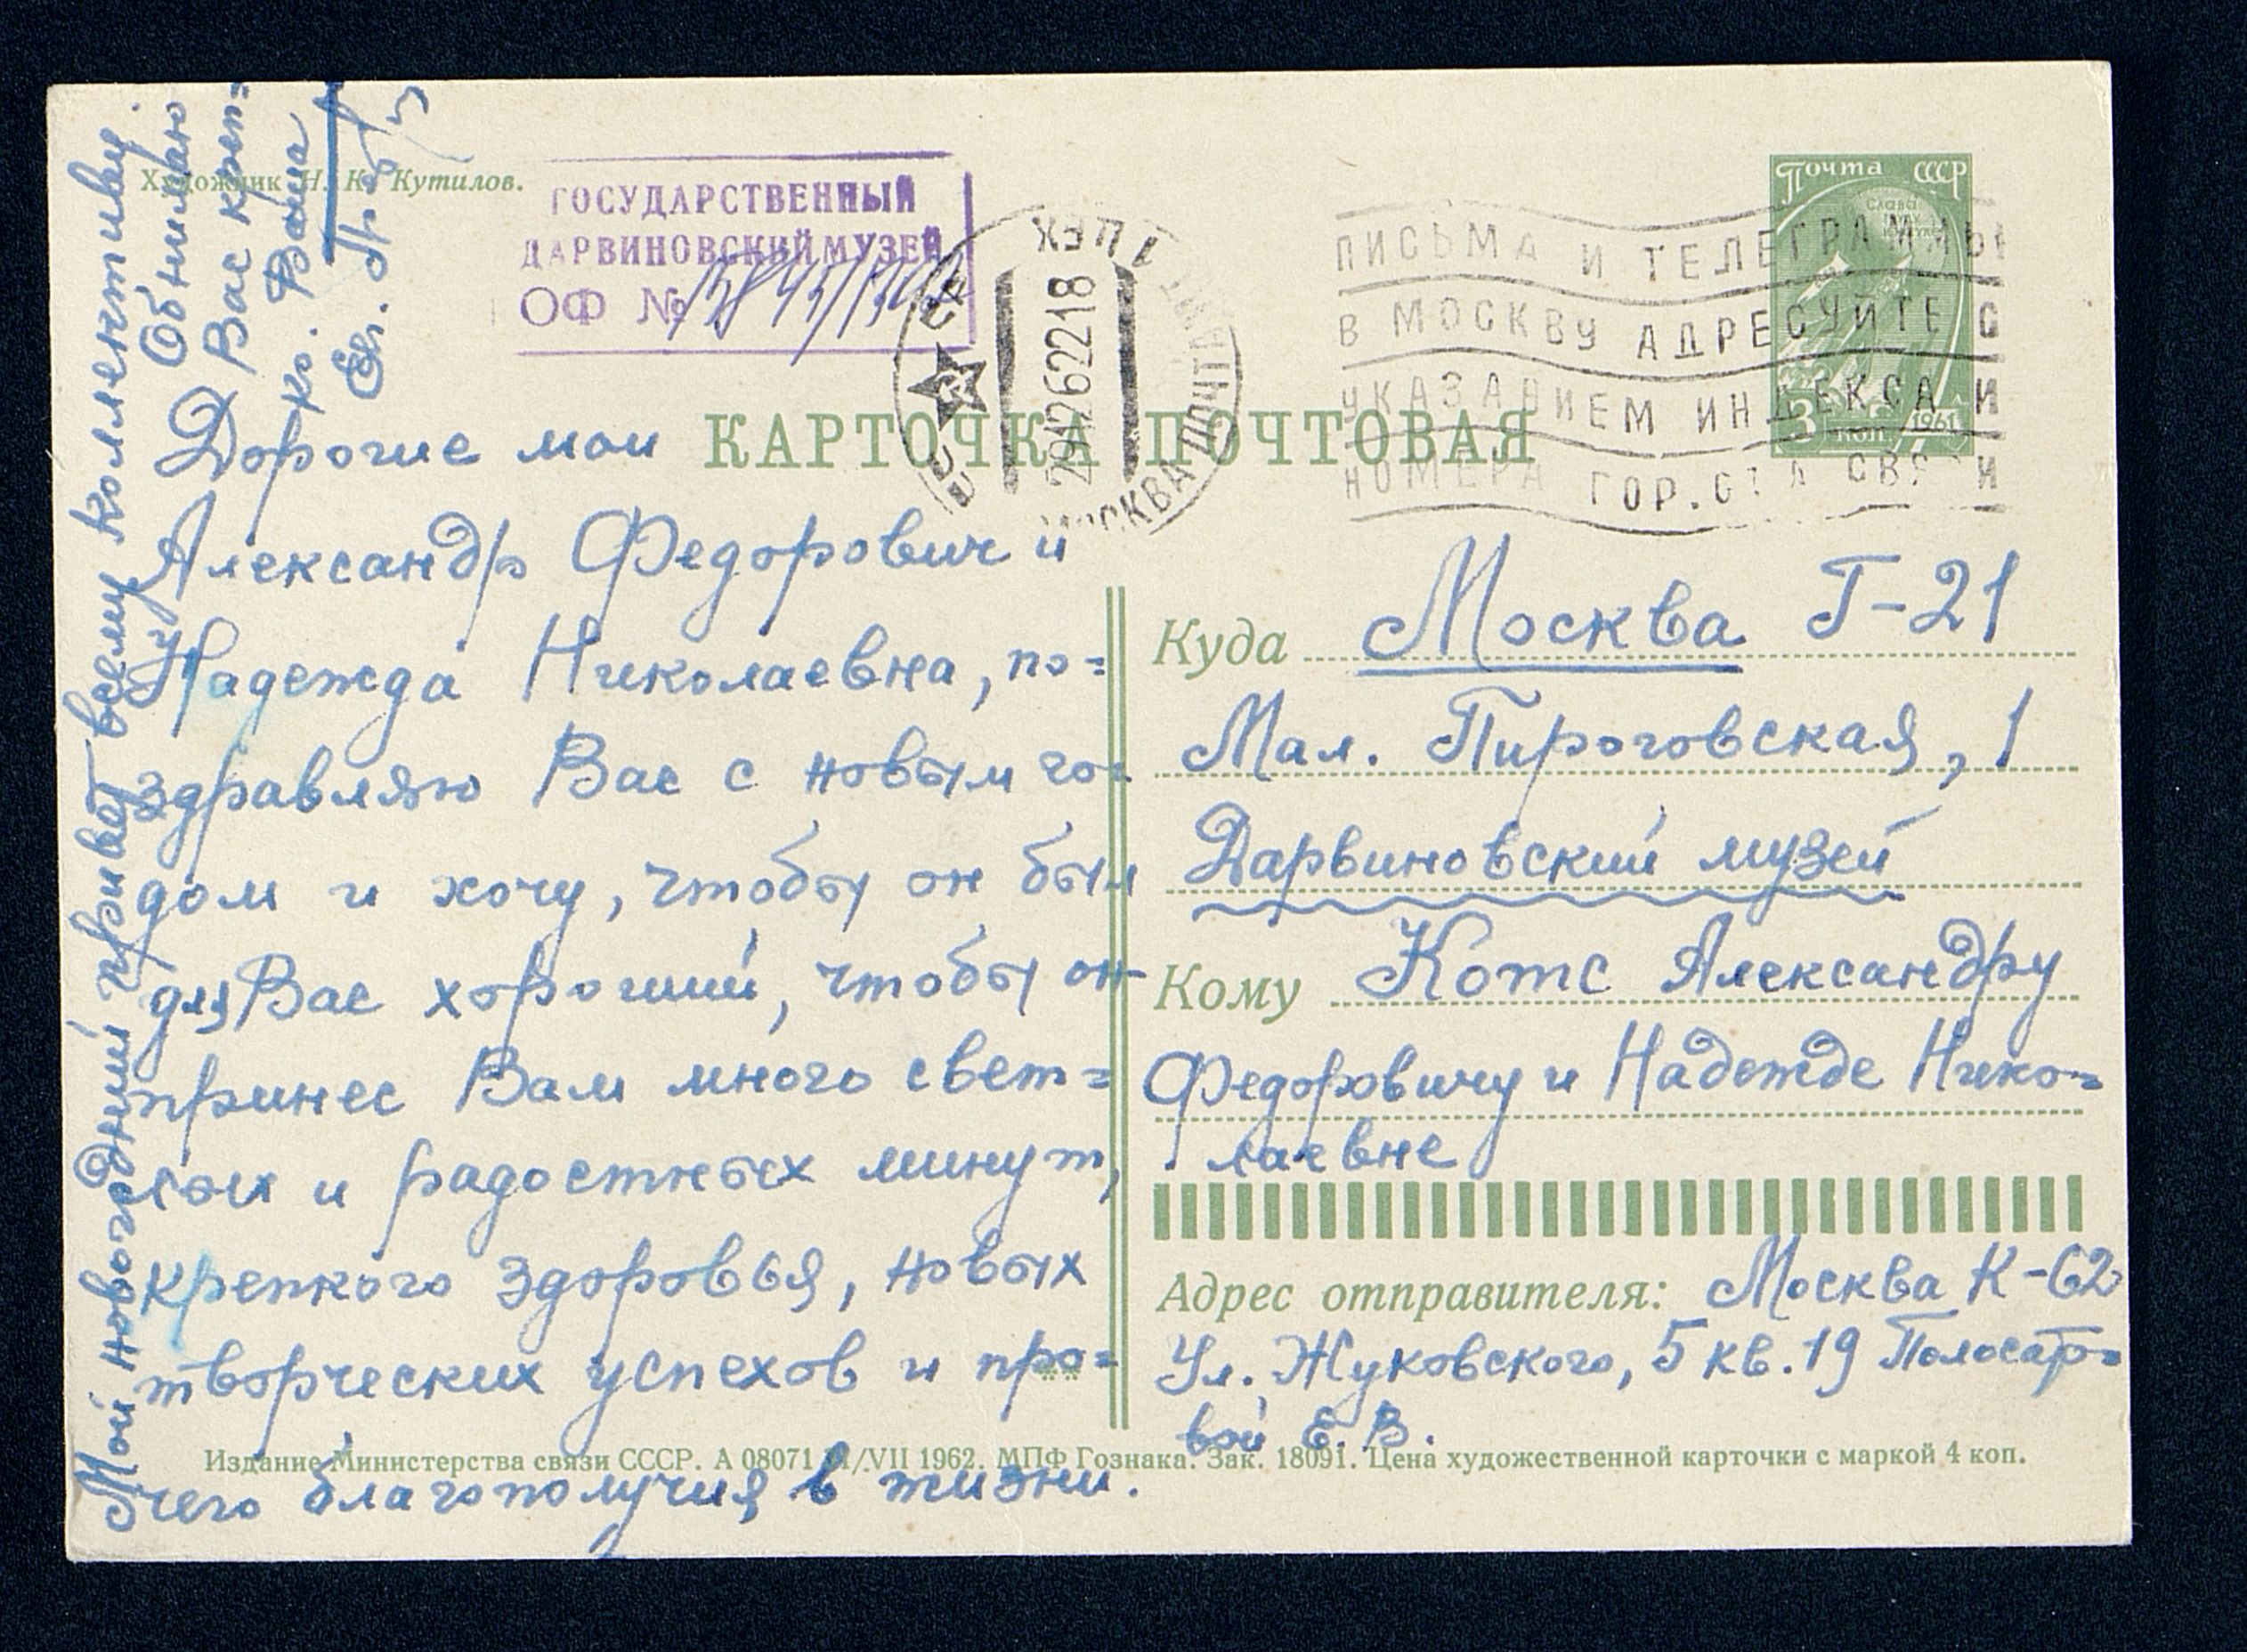 Художник Н. К. Кутилов.
ГОСУДАРСТВЕННЫЙ
ДАРВИНОВСКИЙ МУЗЕЙ
ОФ №
Почта СССР
3 коп. 1961
СССР МОСКВА ПОЧТАМТ 1 ЦЕХ
291262218
ПИСЬМА И ТЕЛЕГРАММЫ
В МОСКВУ АДРЕСУЙТЕ С
УКАЗАНИЕМ ИНДЕКСА И
НОМЕРА ГОР. ОТД СВЯЗИ
КАРТОЧКА ПОЧТОВАЯ
Дорогие мои
Александр Федорович и
Надежда Николаевна, по=
здравляю Вас с новым го=
дом и хочу, чтобы он был
для Вас хороший, чтобы он
принес Вам много свет=
лых и радостных минут,
крепкого здоровья, новых
творческих успехов и про=
чего благополучия в жизни.
Мой новогодний привет всему коллективу.
Обнимаю
Вас креп=
ко. Ваша
Куда Москва Г-21
Мал. Пироговская, 1
Дарвиновский музей
Кому Котс Александру
Федоровичу и Надежде Нико=
лаевне
Адрес отправителя: Москва К-62
Ул. Жуковского, 5 кв. 19
вой Е. В.
Издание Министерства связи СССР. А 08071 /VII 1962. МПФ Гознака. Зак. 18091. Цена художественной карточки с маркой 4 коп.